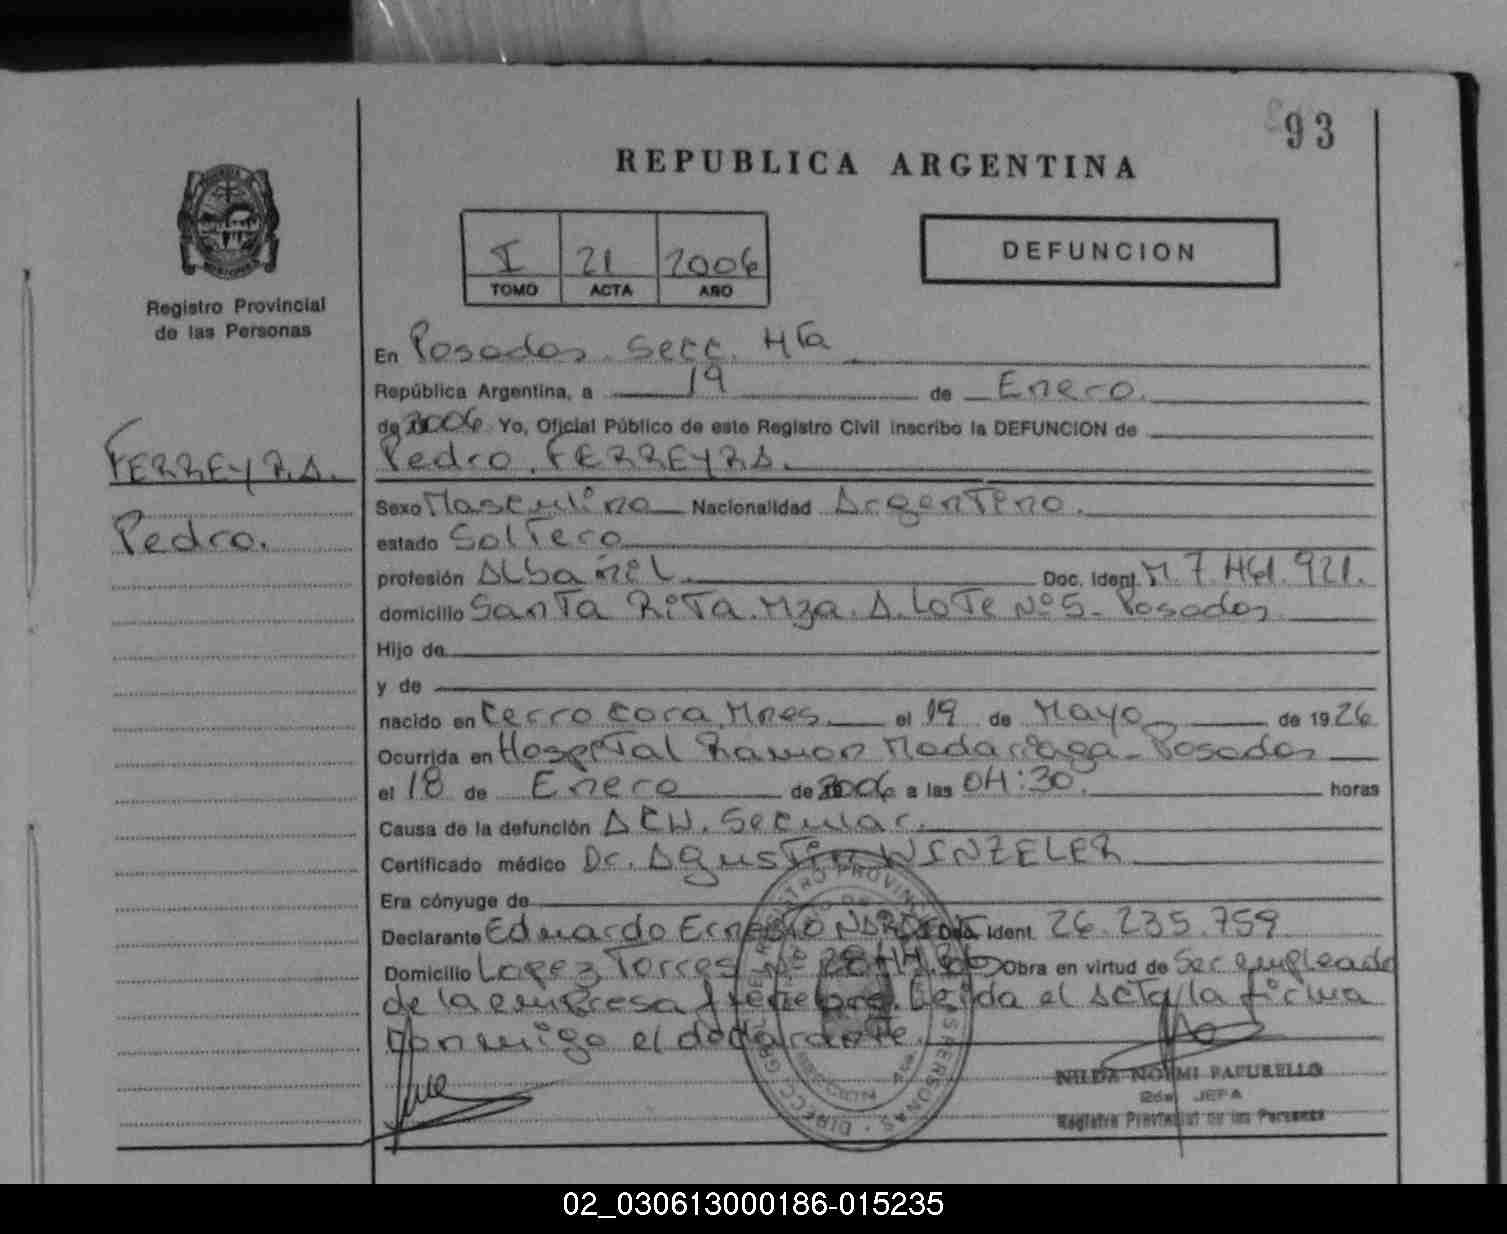 93
REPUBLICA ARGENTINA
I 21 2006
TOMO ACTA AÑO
DEFUNCION
Registro Provincial
de las Personas
FERREYRA.
Pedro.
En Posadas. Secc. 4ta
República Argentina, a 19 de Enero.
de 2006 Yo, Oficial Público de este Registro Civil inscribo la DEFUNCION de
Pedro. FERREYRA.
Sexo Masculino Nacionalidad Argentino.
estado Soltero
profesión Albañil Doc. Ident. M. 7.461.921.
domicilio Santa Rita. Mza. A. Lote Nº 5- Posadas
Hijo de
y de
nacido en Cerro Cora, Mnes. el 19 de Mayo de 1926
Ocurrida en Hospital Ramon Madariaga- Posadas
el 18 de Enero de 2006 a las 04:30. horas
Causa de la defunción ACV. Secular.
Certificado médico Dr. Agustin WINZELER
Era cónyuge de
Declarante Eduardo Ernesto Doc. Ident. 26.235.759
Domicilio Lopez Torres Nº Obra en virtud de Ser empleado
de la empresa Leida el Acta la firma
conmigo el declarante.
NILDA NOEMI PAPURELLO
2da. JEFA
Registro Provincial de las Personas
02_030613000186-015235